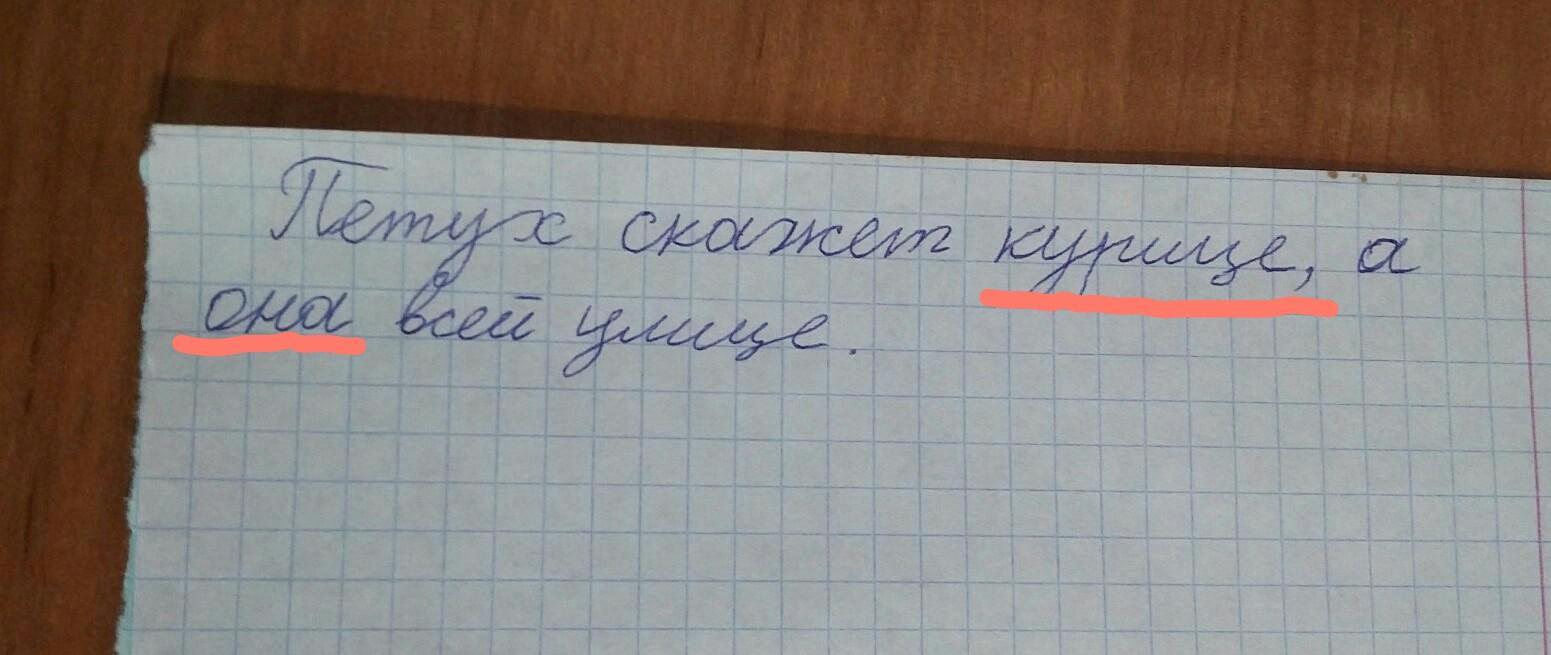 Петух скажет курице, а
она всей улице.